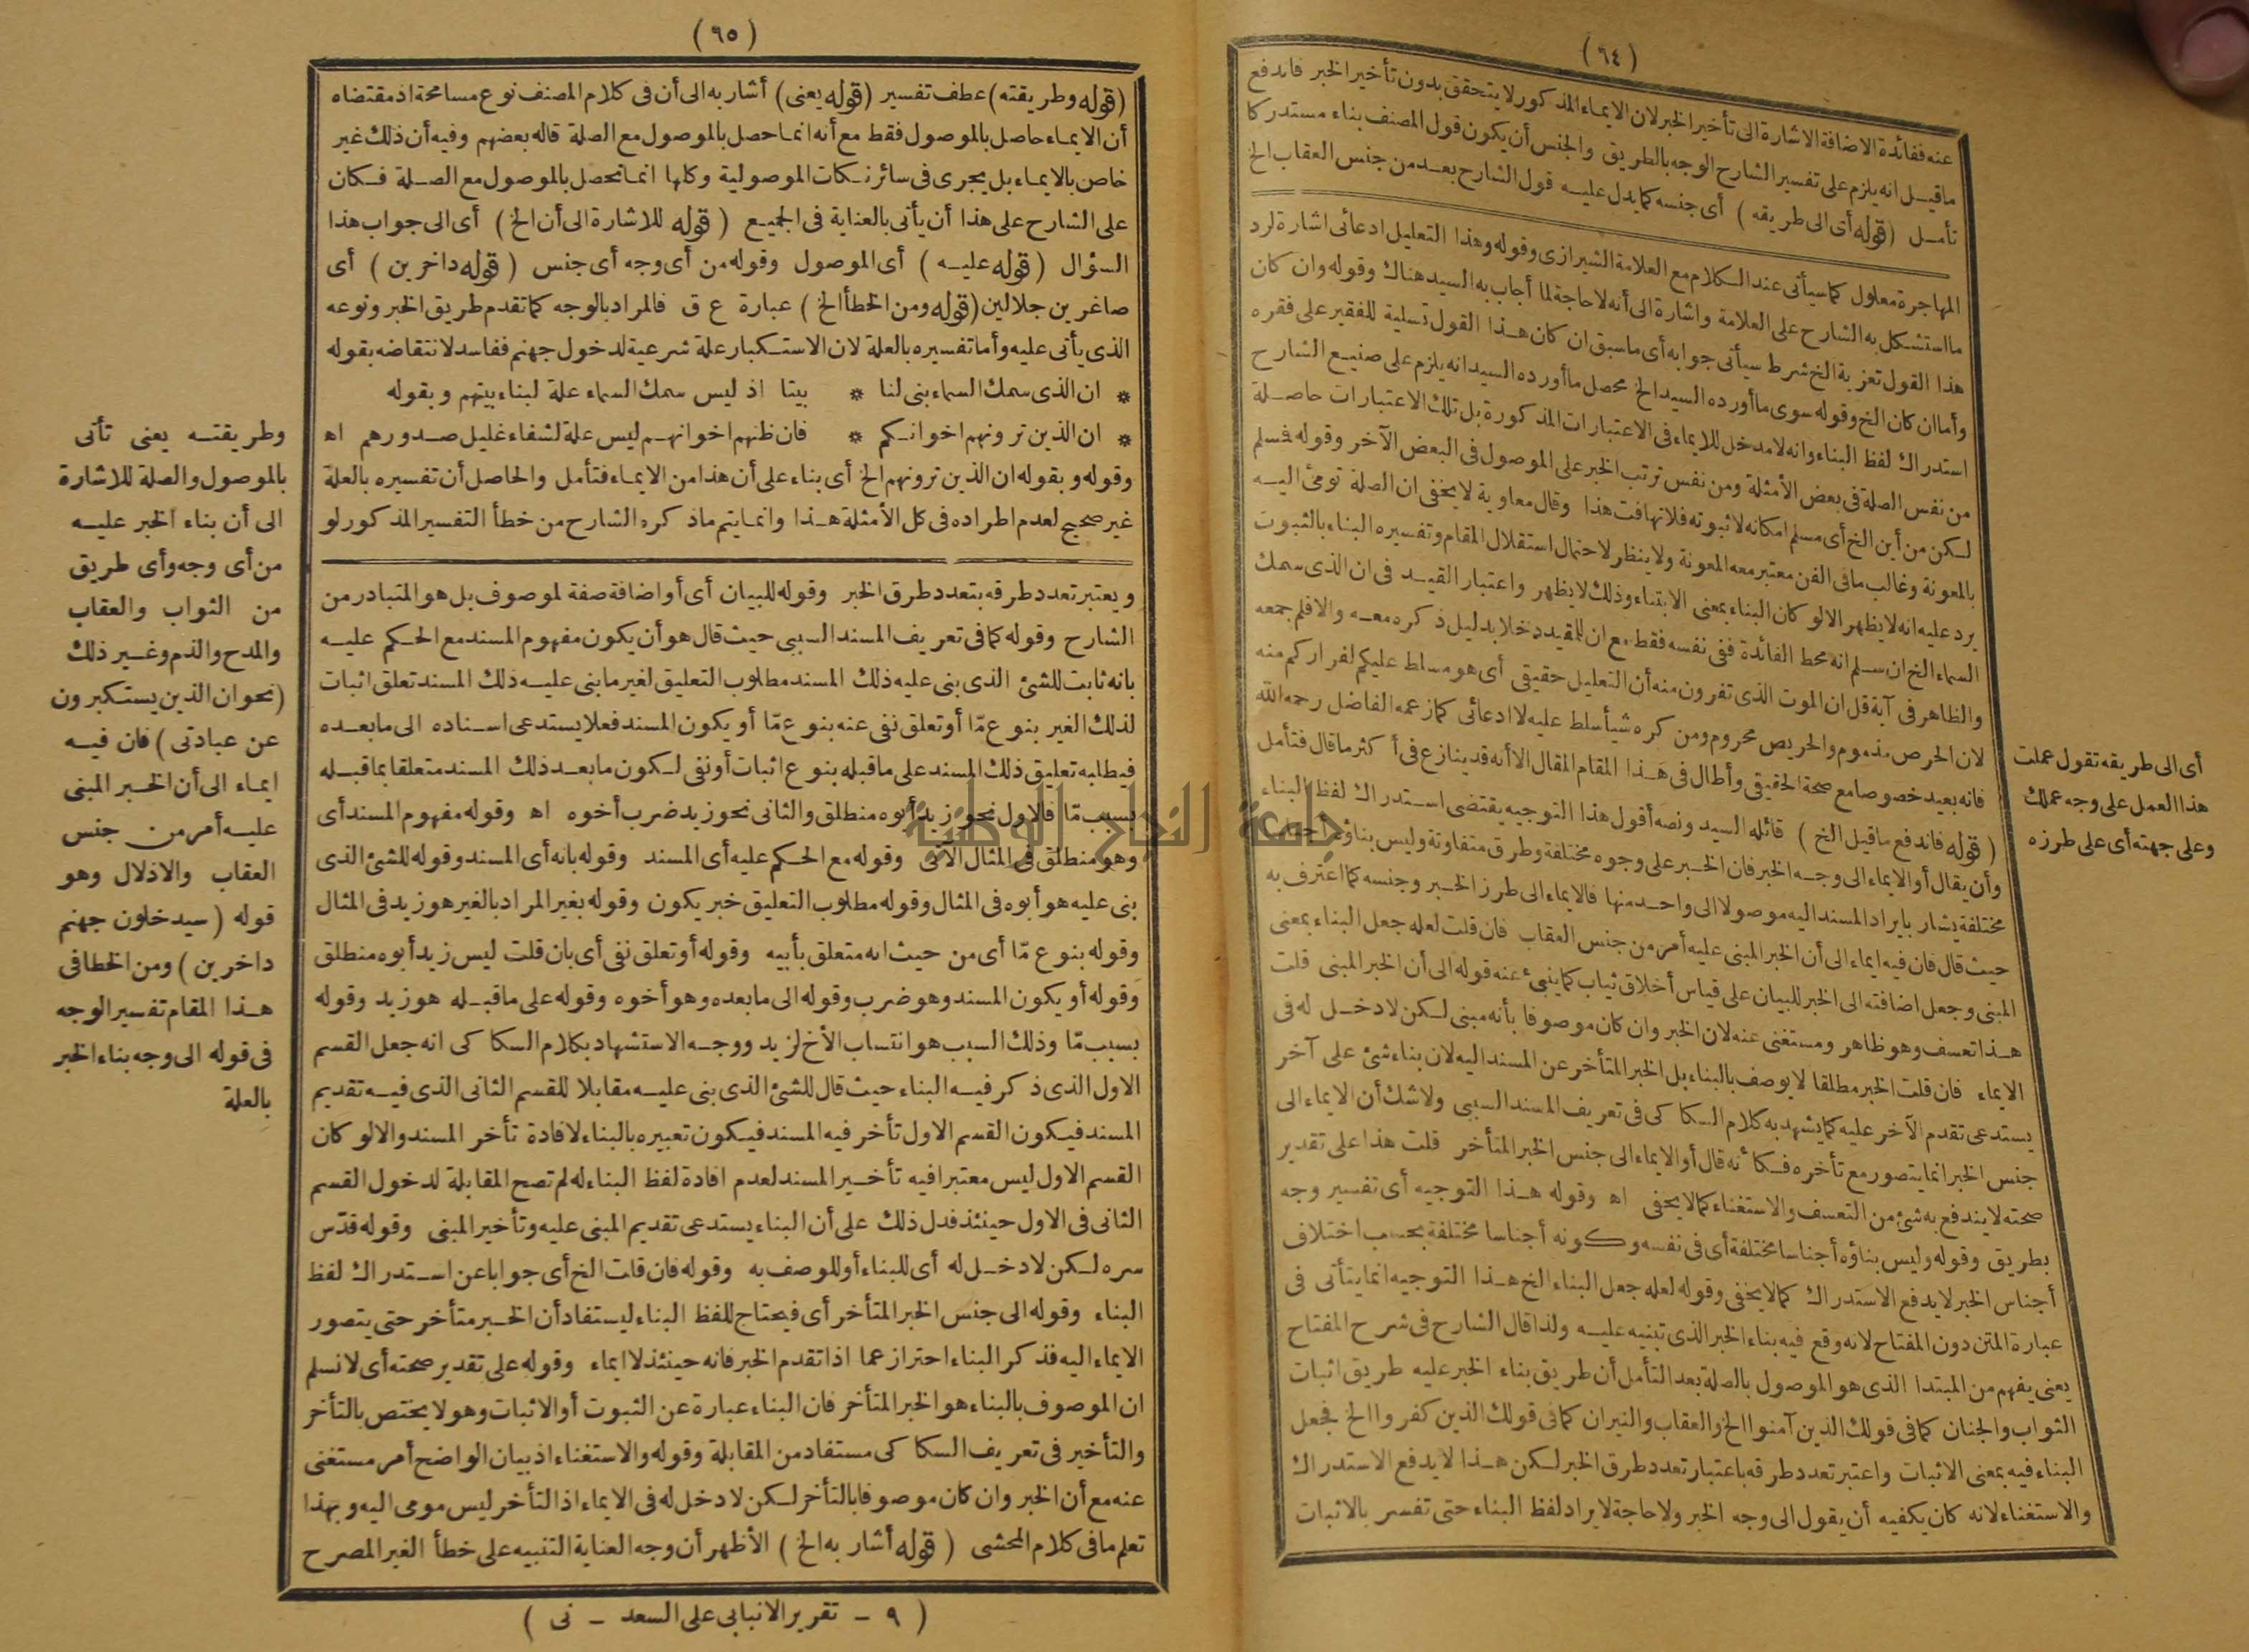 (٦٤)
عنه ففائدة الاضافة الاشارة الى تأخير الخبر لان الايماء المذكور لا يتحقق بدون تأخير الخبر فاندفع
ما قيل انه يلزم على تفسير الشارح الوجه بالطريق والجنس أن يكون قول المصنف بناء مستدركا
تأمل (قوله أى الى طريقه) أى جنسه كما يدل عليه قول الشارح بعد من جنس العقاب الخ
المهاجرة معلول كما سيأتى عند الكلام مع العلامة الشيرازى وقوله وهذا التعليل ادعائى اشارة لرد
ما استشكل به الشارح على العلامة واشارة الى أنه لا حاجة لما أجاب به السيد هناك وقوله وان كان
هذا القول تعزية الخ شرط سيأتى جوابه أى ما سبق ان كان هذا القول تسلية للفقير على فقره
وأما ان كان الخ وقوله سوى ما أورده السيد الخ محصل ما أورده السيد انه يلزم على صنيع الشارح
استدراك لفظ البناء وانه لا مدخل للايماء فى الاعتبارات المذكورة بل تلك الاعتبارات حاصلة
من نفس الصلة فى بعض الأمثلة ومن نفس ترتب الخبر على الموصول فى البعض الآخر وقوله فسلم
لكن من أين الخ أى مسلم امكانه لا ثبوته فلا تهافت هذا وقال معاوية لا يخفى ان الصلة تومئ اليه
بالمعونة وغالب ما فى الفن معتبر معه المعونة ولا ينظر لاحتمال استقلال المقام وتفسيره البناء بالثبوت
يرد عليه انه لا يظهر الا لو كان البناء بمعنى الابتناء وذلك لا يظهر واعتبار القيد فى ان الذى سمك
السماء الخ ان سلم انه محط الفائدة ففى نفسه فقط مع ان للقيد دخلا بدليل ذكره معه والا فلم جمعه
والظاهر فى آية قل ان الموت الذى تفرون منه أن التعليل حقيقى أى هو مسلط عليكم لفراركم منه
لان الحرص مذموم والحريص محروم ومن كره شيأ سلط عليه لا ادعائى كما زعمه الفاضل رحمه الله
فانه بعيد خصوصا مع صحة الحقيقى وأطال فى هذا المقام المقال الا أنه قد ينازع فى أكثر ما قال فتأمل
(قوله فاندفع ما قيل الخ) قائله السيد ونصه أقول هذا التوجيه يقتضى استدراك لفظ البناء
وأن يقال أو الايماء الى وجه الخبر فان الخبر على وجوه مختلفة وطرق متفاوتة وليس بناؤه أجناسا
مختلفة يشار بايراد المسند اليه موصولا الى واحد منها فالايماء الى طرز الخبر وجنسه كما اعترف به
حيث قال فان فيه ايماء الى أن الخبر المبنى عليه أمر من جنس العقاب فان قلت لعله جعل البناء بمعنى
المبنى وجعل اضافته الى الخبر للبيان على قياس أخلاق ثياب كما ينبئ عنه قوله الى أن الخبر المبنى قلت
هذا تعسف وهو ظاهر ومستغنى عنه لان الخبر وان كان موصوفا بأنه مبنى لكن لا دخل له فى
الايماء فان قلت الخبر مطلقا لا يوصف بالبناء بل الخبر المتأخر عن المسند اليه لان بناء شئ على آخر
يستدعى تقدم الآخر عليه كما يشهد به كلام السكاكى فى تعريف المسند السببى ولا شك أن الايماء الى
جنس الخبر انما يتصور مع تأخره فكأنه قال أو الايماء الى جنس الخبر المتأخر قلت هذا على تقدير
صحته لا يندفع به شئ من التعسف والاستغناء كما لا يخفى اه وقوله هذا التوجيه أى تفسير وجه
بطريق وقوله وليس بناؤه أجناسا مختلفة أى فى نفسه وكونه أجناسا مختلفة بحسب اختلاف
أجناس الخبر لا يدفع الاستدراك كما لا يخفى وقوله لعله جعل البناء الخ هذا التوجيه انما يتأتى فى
عبارة المتن دون المفتاح لانه وقع فيه بناء الخبر الذى تبنيه عليه ولذا قال الشارح فى شرح المفتاح
يعنى يفهم من المبتدا الذى هو الموصول بالصلة بعد التأمل أن طريق بناء الخبر عليه طريق اثبات
الثواب والجنان كما فى قولك الذين آمنوا الخ والعقاب والنيران كما فى قولك الذين كفروا الخ فجعل
البناء فيه بمعنى الاثبات واعتبر تعدد طرقه باعتبار تعدد طرق الخبر لكن هذا لا يدفع الاستدراك
والاستغناء لانه كان يكفيه أن يقول الى وجه الخبر ولا حاجة لايراد لفظ البناء حتى تفسر بالاثبات
أى الى طريقه تقول عملت
هذا العمل على وجه عملك
وعلى جهته أى على طرزه
(٦٥)
(قوله وطريقته) عطف تفسير (قوله يعنى) أشار به الى أن فى كلام المصنف نوع مسامحة اذ مقتضاه
أن الايماء حاصل بالموصول فقط مع أنه انما حصل بالموصول مع الصلة قاله بعضهم وفيه أن ذلك غير
خاص بالايماء بل يجرى فى سائر نكات الموصولية وكلها انما تحصل بالموصول مع الصلة فكان
على الشارح على هذا أن يأتى بالعناية فى الجميع (قوله للاشارة الى أن الخ) أى الى جواب هذا
السؤال (قوله عليه) أى الموصول وقوله من أى وجه أى جنس (قوله داخرين) أى
صاغرين جلالين (قوله ومن الخطأ الخ) عبارة ع ق فالمراد بالوجه كما تقدم طريق الخبر ونوعه
الذى يأتى عليه وأما تفسيره بالعلة لان الاستكبار علة شرعية لدخول جهنم ففاسد لانتقاضه بقوله
* ان الذى سمك السماء بنى لنا * بيتا اذ ليس سمك السماء علة لبناء بيتهم وبقوله
* ان الذين ترونهم اخوانكم * فان ظنهم اخوانهم ليس علة لشفاء غليل صدورهم اه
وقوله وبقوله ان الذين ترونهم الخ أى بناء على أن هذا من الايماء فتأمل والحاصل أن تفسيره بالعلة
غير صحيح لعدم اطراده فى كل الأمثلة هذا وانما يتم ما ذكره الشارح من خطأ التفسير المذكور لو
ويعتبر تعدد طرقه بتعدد طرق الخبر وقوله للبيان أى أو اضافة صفة لموصوف بل هو المتبادر من
الشارح وقوله كما فى تعريف المسند السببى حيث قال هو أن يكون مفهوم المسند مع الحكم عليه
بانه ثابت للشئ الذى بنى عليه ذلك المسند مطلوب التعليق لغير ما بنى عليه ذلك المسند تعلق اثبات
لذلك الغير بنوع مّا أو تعلق نفى عنه بنوع مّا أو يكون المسند فعلا يستدعى اسناده الى ما بعده
فيطلب تعليق ذلك المسند على ما قبله بنوع اثبات أو نفى لكون ما بعد ذلك المسند متعلقا بما قبله
بسبب مّا فالاول نحو زيد أبوه منطلق والثانى نحو زيد ضرب أخوه اه وقوله مفهوم المسند أى
وهو منطلق فى المثال الآتى وقوله مع الحكم عليه أى المسند وقوله بانه أى المسند وقوله للشئ الذى
بنى عليه هو أبوه فى المثال وقوله مطلوب التعليق خبر يكون وقوله بغير المراد بالغير هو زيد فى المثال
وقوله بنوع مّا أى من حيث انه متعلق بأبيه وقوله أو تعلق نفى أى بان قلت ليس زيد أبوه منطلق
وقوله أو يكون المسند وهو ضرب وقوله الى ما بعده وهو أخوه وقوله على ما قبله هو زيد وقوله
بسبب مّا وذلك السبب هو انتساب الأخ لزيد ووجه الاستشهاد بكلام السكاكى انه جعل القسم
الاول الذى ذكر فيه البناء حيث قال للشئ الذى بنى عليه مقابلا للقسم الثانى الذى فيه تقديم
المسند فيكون القسم الاول تأخر فيه المسند فيكون تعبيره بالبناء لافادة تأخر المسند والا لو كان
القسم الاول ليس معتبرا فيه تأخير المسند لعدم افادة لفظ البناء له لم تصح المقابلة لدخول القسم
الثانى فى الاول حينئذ فدل ذلك على أن البناء يستدعى تقديم المبنى عليه وتأخير المبنى وقوله قدّس
سره لكن لا دخل له أى للبناء أو للوصف به وقوله فان قلت الخ أى جوابا عن استدراك لفظ
البناء وقوله الى جنس الخبر المتأخر أى فيحتاج للفظ البناء ليستفاد أن الخبر متأخر حتى يتصور
الايماء اليه فذكر البناء احتراز عما اذا تقدم الخبر فانه حينئذ لا ايماء وقوله على تقدير صحته أى لا نسلم
ان الموصوف بالبناء هو الخبر المتأخر فان البناء عبارة عن الثبوت أو الاثبات وهو لا يختص بالتأخر
والتأخير فى تعريف السكاكى مستفاد من المقابلة وقوله والاستغناء اذ بيان الواضح أمر مستغنى
عنه مع أن الخبر وان كان موصوفا بالتأخر لكن لا دخل له فى الايماء اذ التأخر ليس مومى اليه وبهذا
تعلم ما فى كلام المحشى (قوله أشار به الخ) الأظهر أن وجه العناية التنبيه على خطأ الغير المصرح
وطريقته يعنى تأتى
بالموصول والصلة للاشارة
الى أن بناء الخبر عليه
من أى وجه وأى طريق
من الثواب والعقاب
والمدح والذم وغير ذلك
(نحو ان الذين يستكبرون
عن عبادتى) فان فيه
ايماء الى أن الخبر المبنى
عليه أمر من جنس
العقاب والاذلال وهو
قوله (سيدخلون جهنم
داخرين) ومن الخطا فى
هذا المقام تفسير الوجه
فى قوله الى وجه بناء الخبر
بالعلة
(٩ - تقرير الانبابى على السعد - نى)
جامعة النجاح الوطنية